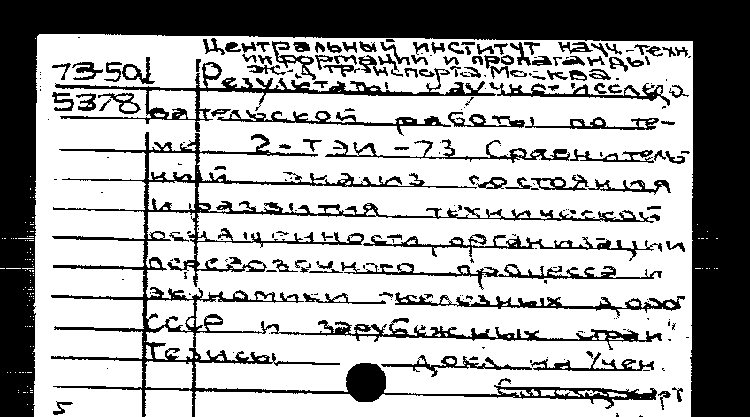 Центральный институт науч.-техн.
информации и пропаганды
ж.-д. транспорта. Москва.
73-50
5378
Результаты научно-исследо
вательской работы по те-
ме 2-ТЭИ-73 „Сравнитель-
ный анализ состояния
и развития технической
оснащенности, организации
перевозочного процесса и
экономики железных дорог
СССР и зарубежных стран".
Тезисы докл. на Учен.
5